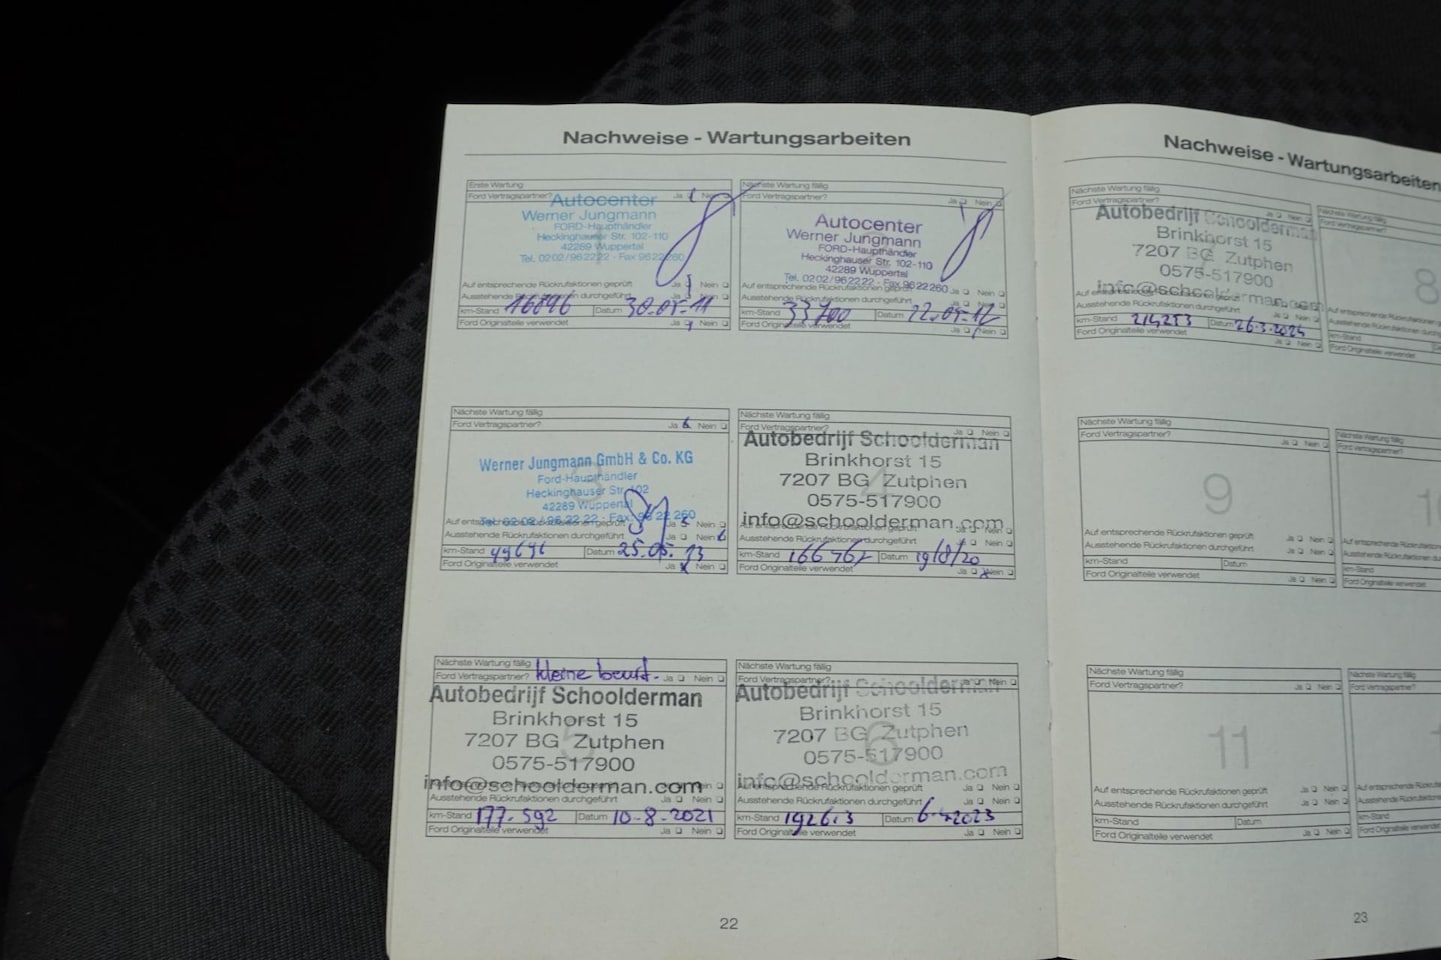 Nachweise - Wartungsarbeiten
Erste Wartung
Ford Vertragspartner? Ja Nein
Autocenter
Werner Jungmann
FORD-Haupthändler
Heckinghauser Str. 102-110
42289 Wuppertal
Tel. 0202/962222 - Fax 9622260
Auf entsprechende Rückrufaktionen geprüft Ja Nein
Ausstehende Rückrufaktionen durchgeführt
km-Stand 16896 Datum 30.05.11
Ford Originalteile verwendet Ja Nein
Nächste Wartung fällig
Ford Vertragspartner? Ja Nein
Autocenter
Werner Jungmann
FORD-Haupthändler
Heckinghauser Str. 102-110
42289 Wuppertal
Tel. 0202/962222 - Fax 9622260
Auf entsprechende Rückrufaktionen geprüft Ja Nein
Ausstehende Rückrufaktionen durchgeführt Ja Nein
km-Stand 33700 Datum
Ford Originalteile verwendet Ja Nein
Nächste Wartung fällig
Ford Vertragspartner? Ja Nein
Werner Jungmann GmbH & Co. KG
Ford-Haupthändler
Heckinghauser Str. 102
42289 Wuppertal
Tel. 02 02 / 96 22 22 - Fax 96 22 260
Auf entsprechende Rückrufaktionen geprüft Ja Nein
Ausstehende Rückrufaktionen durchgeführt Ja Nein
km-Stand Datum 25.05.13
Ford Originalteile verwendet Ja Nein
Nächste Wartung fällig
Ford Vertragspartner? Ja Nein
Autobedrijf Schoolderman
Brinkhorst 15
7207 BG Zutphen
0575-517900
info@schoolderman.com
Ausstehende Rückrufaktionen durchgeführt Ja Nein
km-Stand 166762 Datum 19/8/20
Ford Originalteile verwendet Ja Nein
Nächste Wartung fällig kleine beurt.
Ford Vertragspartner? Ja Nein
Autobedrijf Schoolderman
Brinkhorst 15
7207 BG Zutphen
0575-517900
info@schoolderman.com
Ausstehende Rückrufaktionen durchgeführt Ja Nein
km-Stand 177.592 Datum 10-8-2021
Ford Originalteile verwendet Ja Nein
Nächste Wartung fällig
Ford Vertragspartner? Ja Nein
Autobedrijf Schoolderman
Brinkhorst 15
7207 BG Zutphen
0575-517900
info@schoolderman.com
Auf entsprechende Rückrufaktionen geprüft Ja Nein
Ausstehende Rückrufaktionen durchgeführt Ja Nein
km-Stand 192613 Datum 6-4-2023
Ford Originalteile verwendet Ja Nein
22
Nachweise - Wartungsarbeiten
Nächste Wartung fällig
Ford Vertragspartner? Ja Nein
Autobedrijf Schoolderman
Brinkhorst 15
7207 BG Zutphen
0575-517900
info@schoolderman.com
Ausstehende Rückrufaktionen durchgeführt Ja Nein
km-Stand 214253 Datum 26-3-2025
Ford Originalteile verwendet Ja Nein
Nächste Wartung fällig
Ford Vertragspartner?
8
Auf entsprechende Rückrufaktionen
km-Stand
Ford Originalteile verwendet
Nächste Wartung fällig
Ford Vertragspartner? Ja Nein
9
Auf entsprechende Rückrufaktionen geprüft Ja Nein
Ausstehende Rückrufaktionen durchgeführt Ja Nein
km-Stand Datum
Ford Originalteile verwendet Ja Nein
Nächste Wartung fällig
Ford Vertragspartner?
Auf entsprechende
Ausstehende
km-Stand
Ford Originalteile verwendet
Nächste Wartung fällig
Ford Vertragspartner? Ja Nein
11
Auf entsprechende Rückrufaktionen geprüft Ja Nein
Ausstehende Rückrufaktionen durchgeführt Ja Nein
km-Stand Datum
Ford Originalteile verwendet Ja Nein
Nächste Wartung
Ford Vertragspartner?
Auf entsprechende
Ausstehende
km-Stand
Ford Originalteile
23